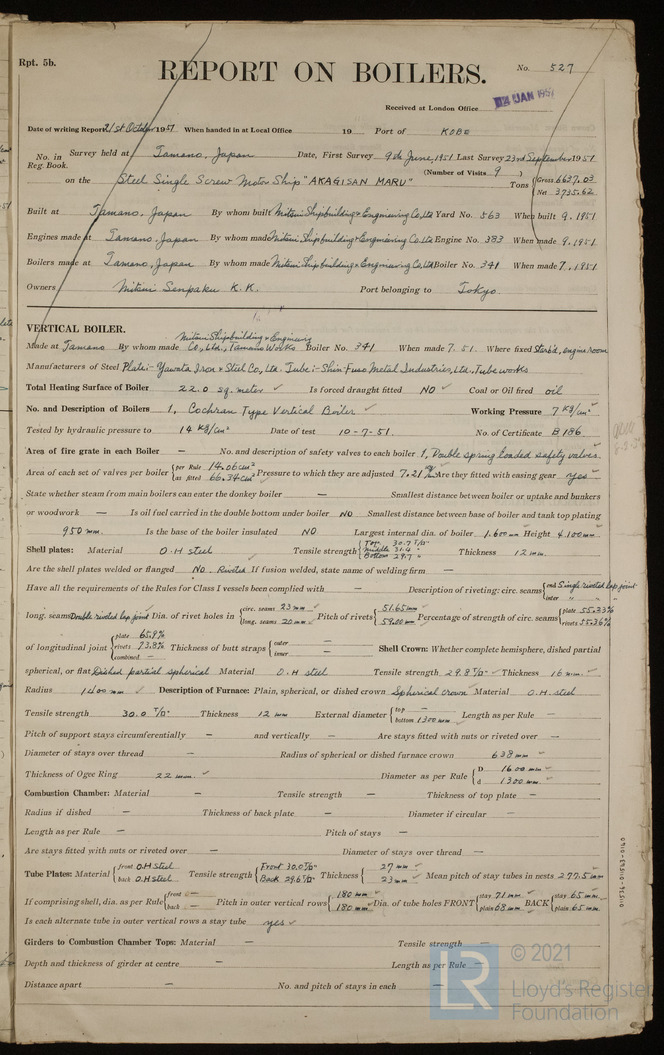 Rpt. 5b.
REPORT ON BOILERS.
No. 527
Received at London Office 14 JAN 195
Date of writing Report 21st October 1951 When handed in at Local Office 19 Port of KOBE
No. in Reg. Book. Survey held at Tamano, Japan Date, First Survey 9th June, 1951 Last Survey 23rd September 1951
(Number of Visits 9 )
on the Steel Single Screw Motor Ship "AKAGISAN MARU" Tons { Gross 6637.03 Net 3735.62
Built at Tamano, Japan By whom built Mitsui Shipbuilding & Engineering Co. Ltd. Yard No. 563 When built 9. 1951
Engines made at Tamano, Japan By whom made Mitsui Shipbuilding & Engineering Co. Ltd. Engine No. 383 When made 9. 1951
Boilers made at Tamano, Japan By whom made Mitsui Shipbuilding & Engineering Co. Ltd. Boiler No. 341 When made 7. 1951
Owners Mitsui Senpaku K. K. Port belonging to Tokyo
VERTICAL BOILER.
Made at Tamano By whom made Mitsui Shipbuilding & Engineering Co., Ltd., Tamano Works Boiler No. 341 When made 7. 51. Where fixed Starb'd, engine room
Manufacturers of Steel Plate:- Yawata Iron & Steel Co., Ltd. Tube:- Shin-Fuso Metal Industries, Ltd., Tube works
Total Heating Surface of Boiler 22.0 sq. meter Is forced draught fitted NO Coal or Oil fired oil
No. and Description of Boilers 1, Cochran Type Vertical Boiler Working Pressure 7 Kg/cm²
Tested by hydraulic pressure to 14 Kg/cm² Date of test 10-7-51. No. of Certificate B 186
Area of fire grate in each Boiler — No. and description of safety valves to each boiler 1, Double spring loaded safety valves.
Area of each set of valves per boiler { per Rule 14.06 cm² as fitted 66.34 cm² Pressure to which they are adjusted 7.21 Are they fitted with easing gear yes
State whether steam from main boilers can enter the donkey boiler — Smallest distance between boiler or uptake and bunkers
or woodwork — Is oil fuel carried in the double bottom under boiler NO Smallest distance between base of boiler and tank top plating
950 mm. Is the base of the boiler insulated NO Largest internal dia. of boiler 1.600 m Height 4.100 mm
Shell plates: Material O.H steel Tensile strength { Top 30.7 T/□" Middle 31.4 " Bottom 29.7 " Thickness 12 mm.
Are the shell plates welded or flanged NO. Riveted If fusion welded, state name of welding firm —
Have all the requirements of the Rules for Class I vessels been complied with — Description of riveting: circ. seams { end Single riveted lap joint inter " " "
long. seams Double riveted lap joint Dia. of rivet holes in { circ. seams 23 mm long. seams 20 mm Pitch of rivets { 51.65 mm 59.00 mm Percentage of strength of circ. seams { plate 55.33% rivets 55.36%
of longitudinal joint { plate 65.9% rivets 73.8% combined — Thickness of butt straps { outer — inner — Shell Crown: Whether complete hemisphere, dished partial
spherical, or flat Dished partial spherical Material O.H steel Tensile strength 29.8 T/□" Thickness 16 mm.
Radius 1400 mm Description of Furnace: Plain, spherical, or dished crown Spherical crown Material O.H. steel
Tensile strength 30.0 T/□" Thickness 12 mm External diameter { top — bottom 1300 mm Length as per Rule —
Pitch of support stays circumferentially — and vertically — Are stays fitted with nuts or riveted over —
Diameter of stays over thread — Radius of spherical or dished furnace crown 638 mm
Thickness of Ogee Ring 22 mm. Diameter as per Rule { D 1600 mm d 1300 mm
Combustion Chamber: Material — Tensile strength — Thickness of top plate —
Radius if dished — Thickness of back plate — Diameter if circular —
Length as per Rule — Pitch of stays —
Are stays fitted with nuts or riveted over — Diameter of stays over thread —
Tube Plates: Material { front O.H Steel back O.H Steel Tensile strength { Front 30.0 T/□" Back 29.6 T/□" Thickness { 27 mm 23 mm Mean pitch of stay tubes in nests 277.5 mm
If comprising shell, dia. as per Rule { front — back — Pitch in outer vertical rows { 180 mm 180 mm Dia. of tube holes FRONT { stay 71 mm plain 68 mm BACK { stay 65 mm plain 65 mm
Is each alternate tube in outer vertical rows a stay tube yes
Girders to Combustion Chamber Tops: Material — Tensile strength —
Depth and thickness of girder at centre — Length as per Rule —
Distance apart — No. and pitch of stays in each —
© 2021
LR Lloyd's Register
Foundation